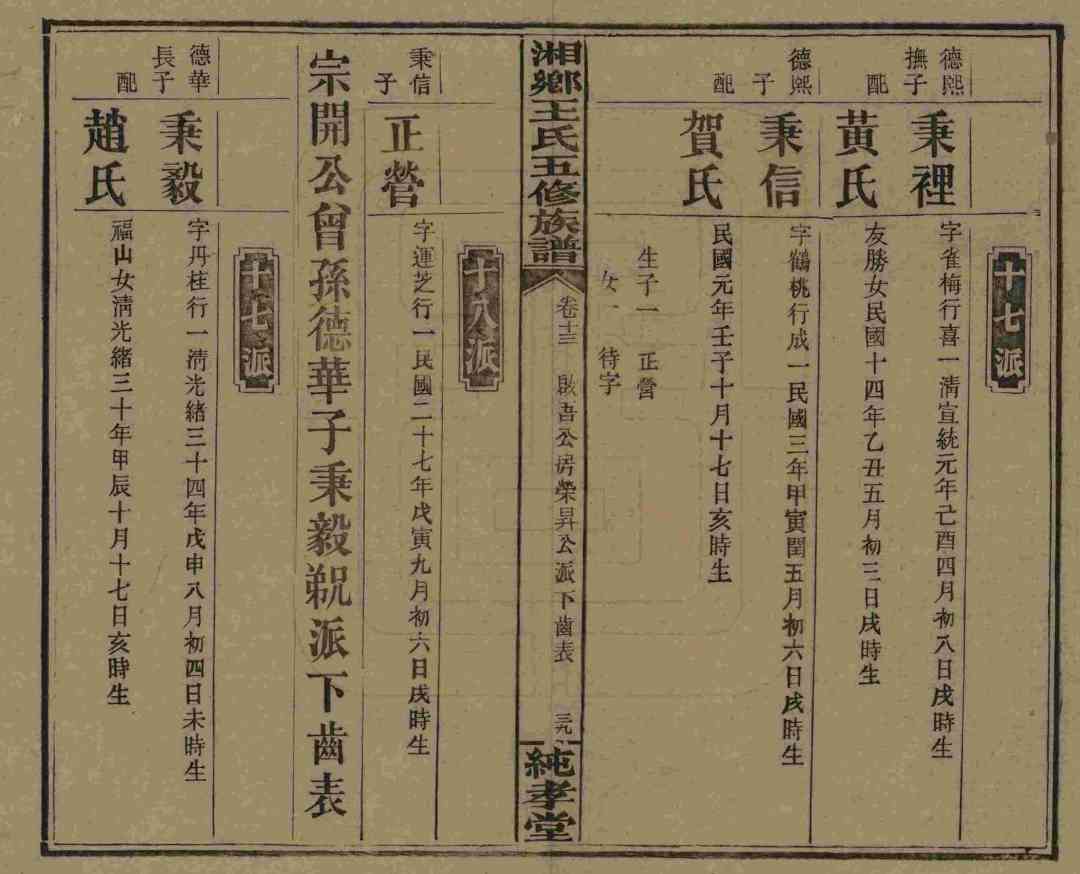 十七派
德熙撫子
秉裡
字雀梅行喜一清宣統元年己酉四月初八日戌時生
配
黄氏
友勝女民國十四年乙丑五月初三日戌時生
德熙子
秉信
字鶴桃行成一民國三年甲寅閏五月初六日戌時生
配
賀氏
民國元年壬子十月十七日亥時生
生子一 正營
女一 待字
湘鄉王氏五修族譜
卷十三 啟吾公房榮昇公派下齒表 三九
純孝堂
十八派
秉信子
正營
字運芝行一民國二十七年戊寅九月初六日戌時生
宗開公曾孫德華子秉毅派下齒表
十七派
德華長子
秉毅
字丹桂行一清光緒三十四年戊申八月初四日未時生
配
趙氏
福山女清光緒三十年甲辰十月十七日亥時生